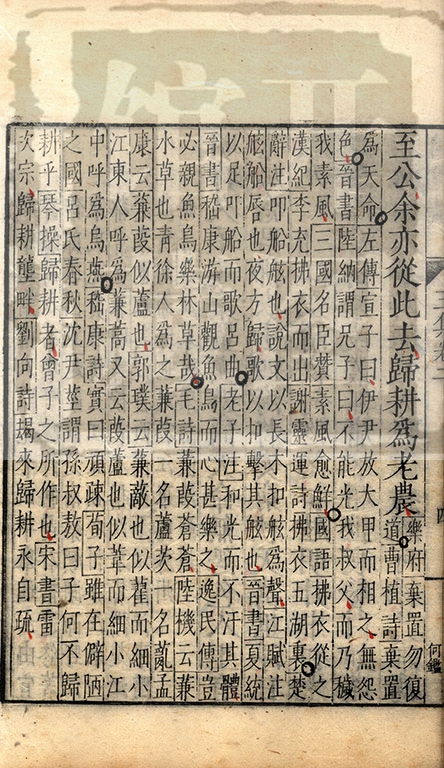 至公余亦從此去歸耕爲老農
樂府棄置勿復
道曹植詩棄置
爲天命左傳宣子曰伊尹放大甲而相之無怨
色晉書陸納謂兄子曰不能光我叔父而乃穢
我素風三國名臣贊素風愈鮮國語拂衣從之
漢紀李充拂衣而出謝靈運詩拂衣五湖裏楚
辭注叩船舷也說文以長木扣舷爲聲江賦注
舷船脣也夜方歸歌以扣擊其舷也晉書夏統
以足叩船而歌呂曲老子注和光而不汙其體
晉書嵇康游山觀魚鳥而心甚樂之逸民傳豈
必親魚鳥樂林草哉毛詩蒹葭蒼蒼陸機云蒹
水草也青徐人爲之蒹葭一名蘆菼一名薍孟
康云蒹葭似蘆也郭璞云蒹薕也似雚而細小
江東人呼爲蒹蒿又云葭蘆也似葦而細小江
中呼爲烏嵇康詩實曰頑疎荀子雖在僻陋
之國呂氏春秋沈尹莖謂孫叔敖曰子何不歸
耕乎琴操歸耕者曾子之所作也宋書雷
次宗歸耕壟畔劉向詩朅來歸耕永自疏
四
何鑑